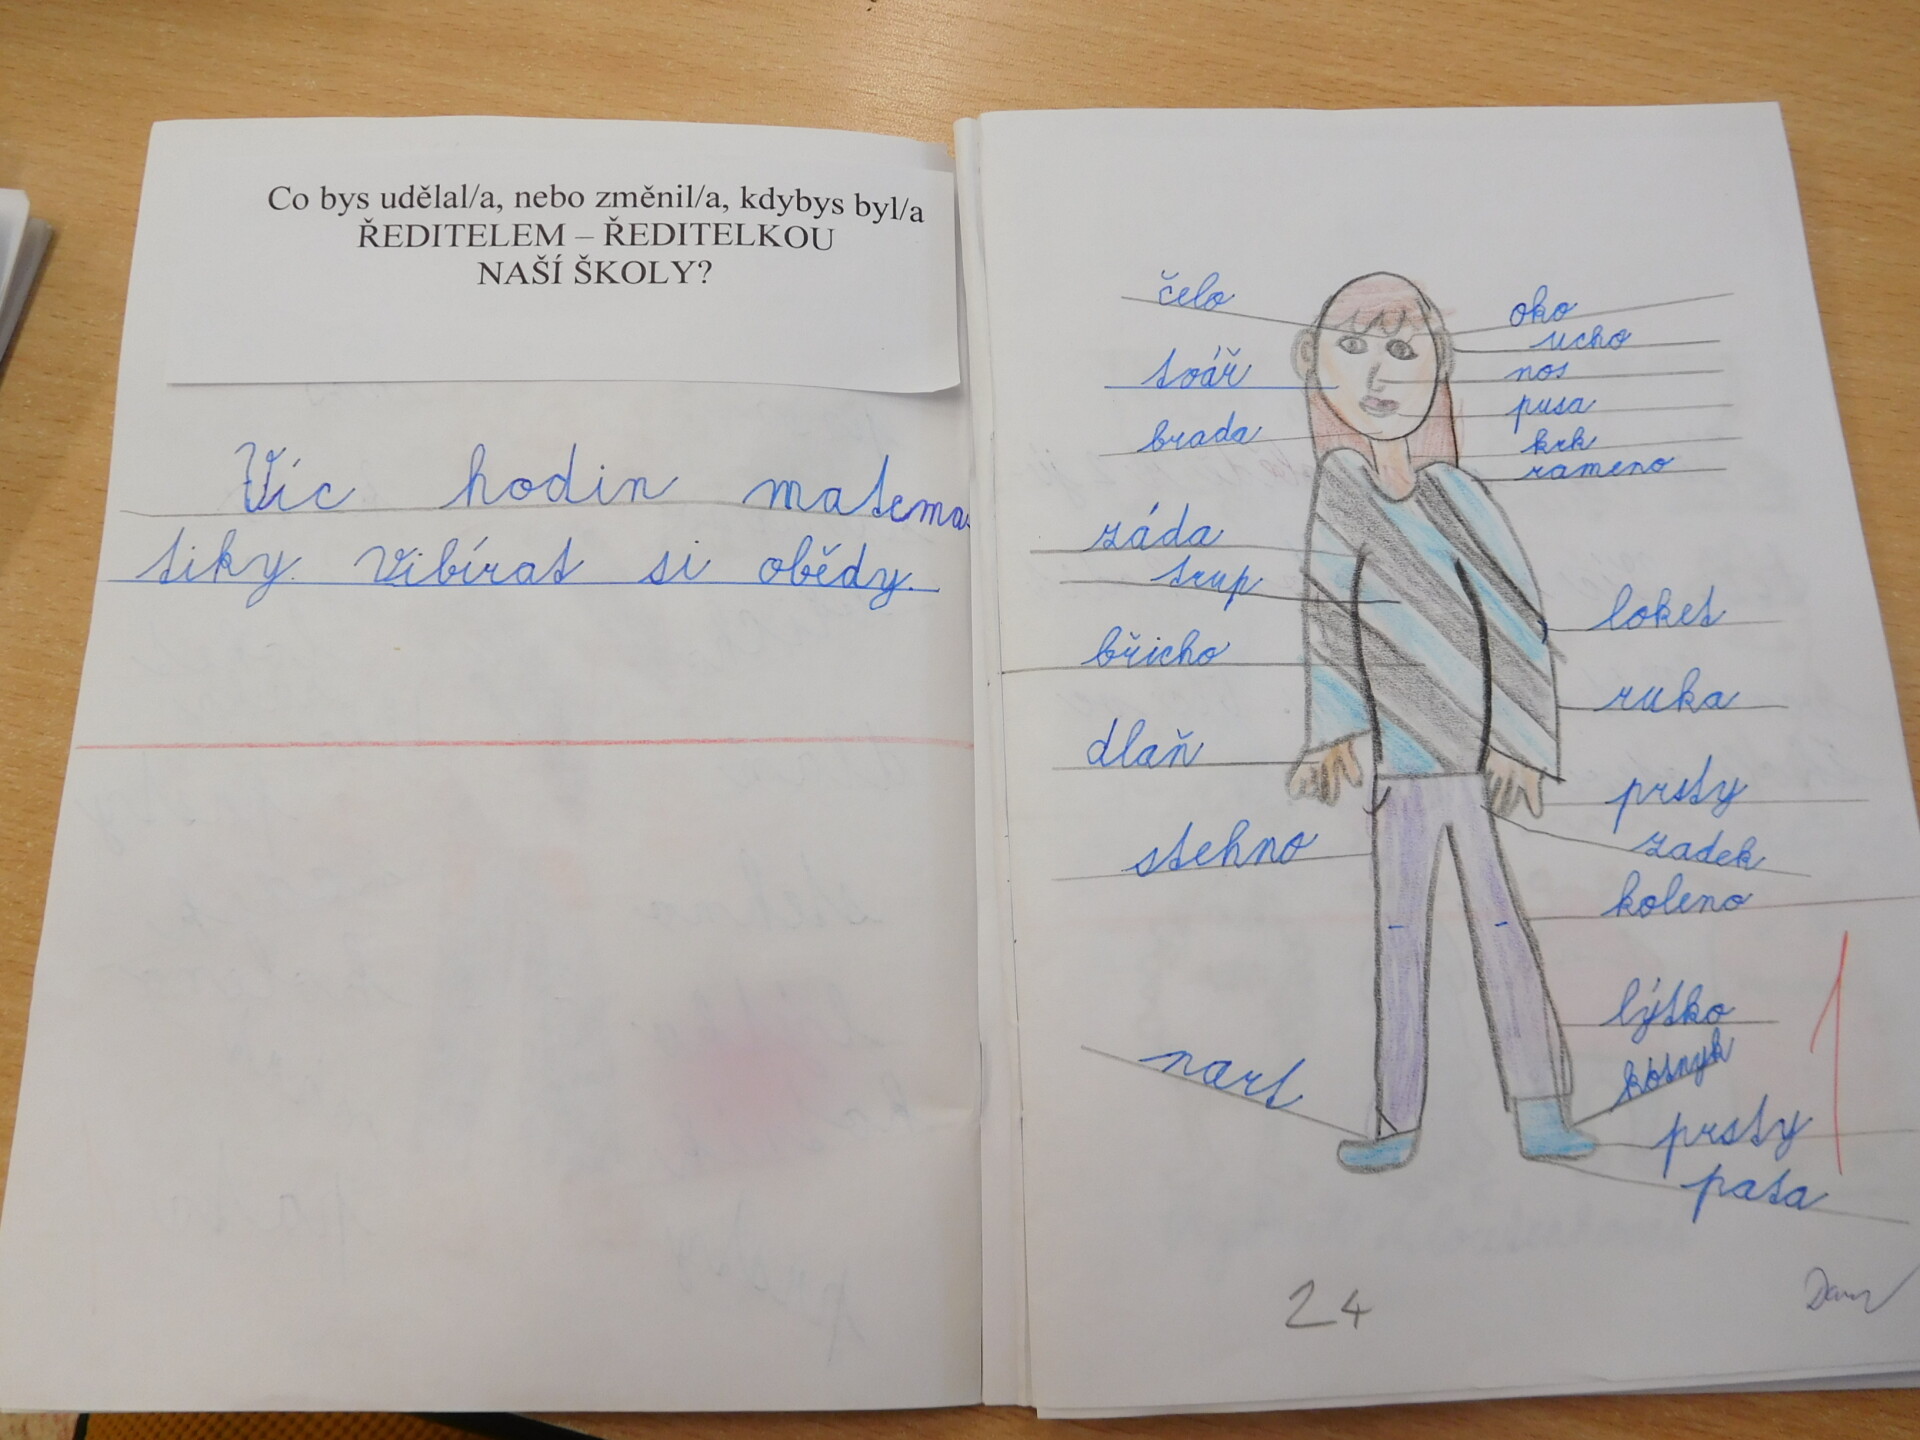 Co bys udělal/a, nebo změnil/a, kdybys byl/a
ŘEDITELEM – ŘEDITELKOU
NAŠÍ ŠKOLY?
Víc hodin matema
tiky. Vibírat si obědy.
čelo
tvář
brada
záda
trup
břicho
dlaň
stehno
nart
oko
ucho
nos
pusa
krk
rameno
loket
ruka
prsty
zadek
koleno
lýtko
kotnyk
prsty
pata
1
24